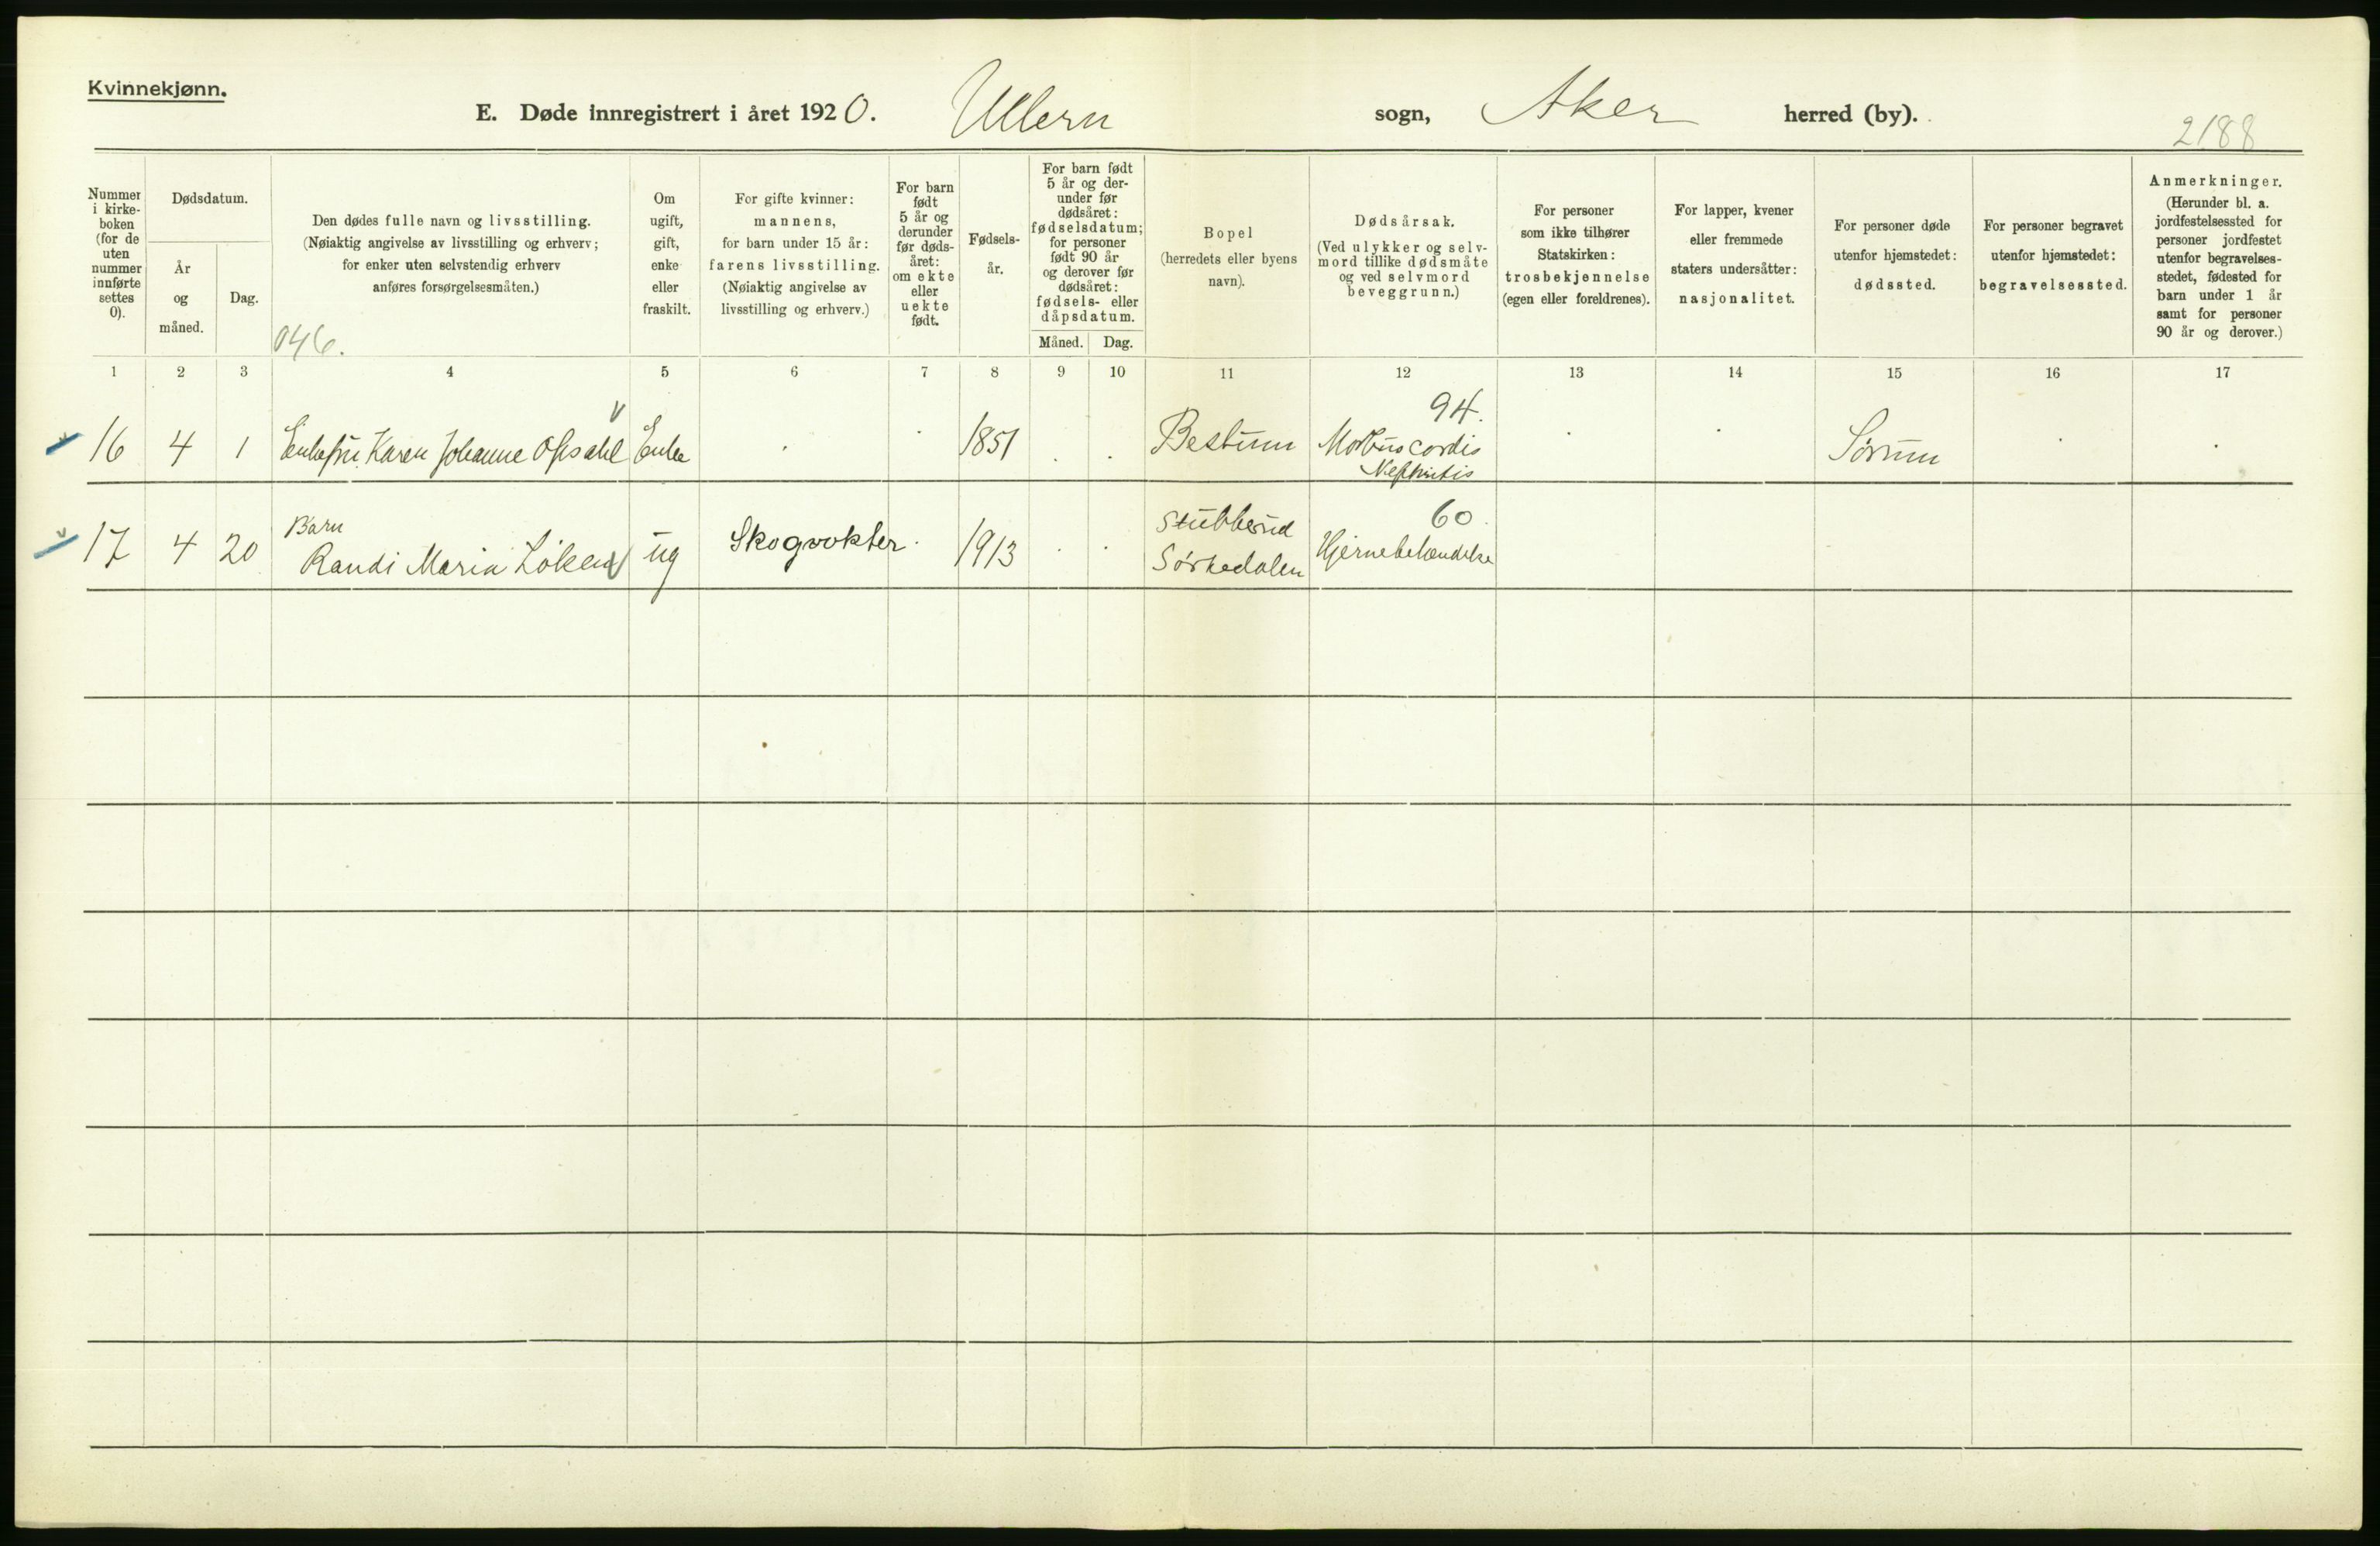 Kvinnekjønn.
E. Døde innregistrert i året 1920. Ullern sogn, Aker herred (by).
2188
Nummer
i kirke-
boken
(for de
uten
nummer
innførte
settes
0).
Dødsdatum.
År
og
måned.
Dag.
Den dødes fulle navn og livsstilling.
(Nøiaktig angivelse av livsstilling og erhverv;
for enker uten selvstendig erhverv
anføres forsørgelsesmåten.)
046.
Om
ugift,
gift,
enke
eller
fraskilt.
For gifte kvinner:
mannens,
for barn under 15 år:
farens livsstilling.
(Nøiaktig angivelse av
livsstilling og erhverv.)
For barn
født
5 år og
derunder
før døds-
året:
om ekte
eller
uekte
født.
Fødsels-
år.
For barn født
5 år og der-
under før
dødsåret:
fødselsdatum;
for personer
født 90 år
og derover før
dødsåret:
fødsels- eller
dåpsdatum.
Måned. Dag.
Bopel
(herredets eller byens
navn).
Dødsårsak.
(Ved ulykker og selv-
mord tillike dødsmåte
og ved selvmord
beveggrunn.)
For personer
som ikke tilhører
Statskirken:
trosbekjennelse
(egen eller foreldrenes).
For lapper, kvener
eller fremmede
staters undersåtter:
nasjonalitet.
For personer døde
utenfor hjemstedet:
dødssted.
For personer begravet
utenfor hjemstedet:
begravelsessted.
Anmerkninger.
(Herunder bl. a.
jordfestelsessted for
personer jordfestet
utenfor begravelses-
stedet, fødested for
barn under 1 år
samt for personer
90 år og derover.)
1 2 3 4 5 6 7 8 9 10 11 12 13 14 15 16 17
94.
16 4 1 Enkefru Karen Johanne Opsahl Enke 1851 Bestum Morbus cordis Sørum
Nephritis
Barn Stubberud 60.
17 4 20 Randi Maria Løken ug Skogvokter 1913 Sørkedalen Hjernebetændelse